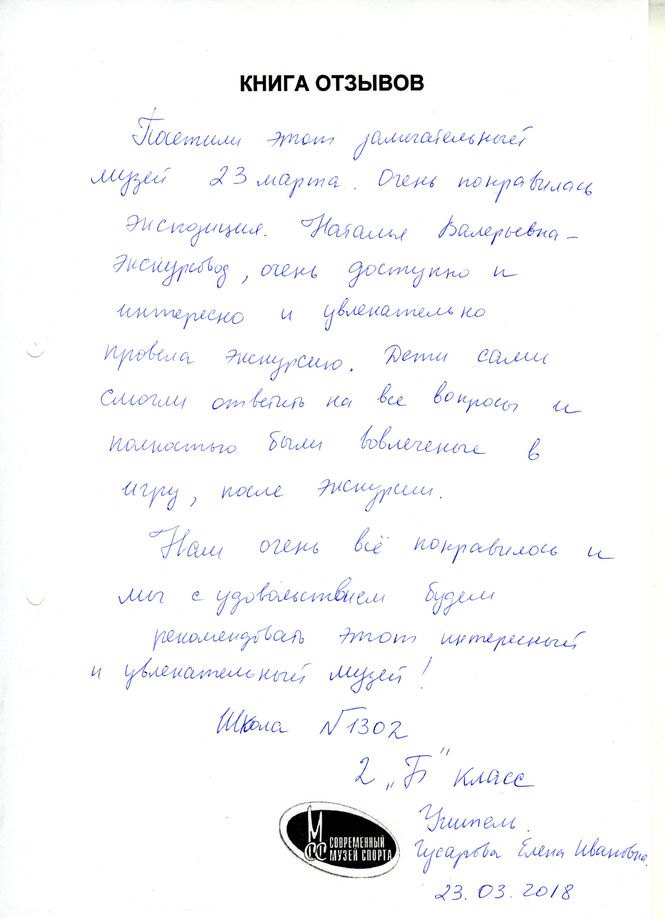 КНИГА ОТЗЫВОВ
Посетили этот замечательный
музей 23 марта. Очень понравилась
экспозиция. Наталья Валерьевна -
экскурсовод, очень доступно и
интересно и увлекательно
провела экскурсию. Дети сами
смогли ответить на все вопросы и
полностью были вовлеченые в
игру, после экскурсии.
Нам очень всё понравилось и
мы с удовольствием будем
рекомендовать этот интересный
и увлекательный музей!
Школа №1302
2 „Б" класс
Учитель.
Гусарова Елена Ивановна.
23.03.2018
М
СС СОВРЕМЕННЫЙ
МУЗЕЙ СПОРТА